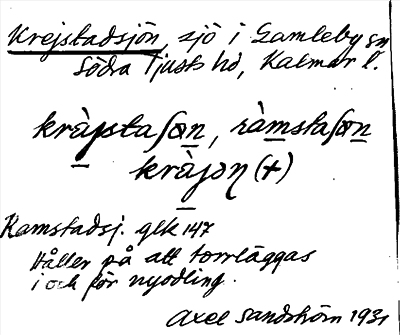 Krejstadsjön, sjö i Gamleby sn
Södra Tjusts hd, Kalmar l.
kràjstaʃøn, ràmstaʃøn
kràjøn (+)
Ramstadsj. glk 147
Håller på att torrläggas
i och för nyodling.
Axel Sandström 1931